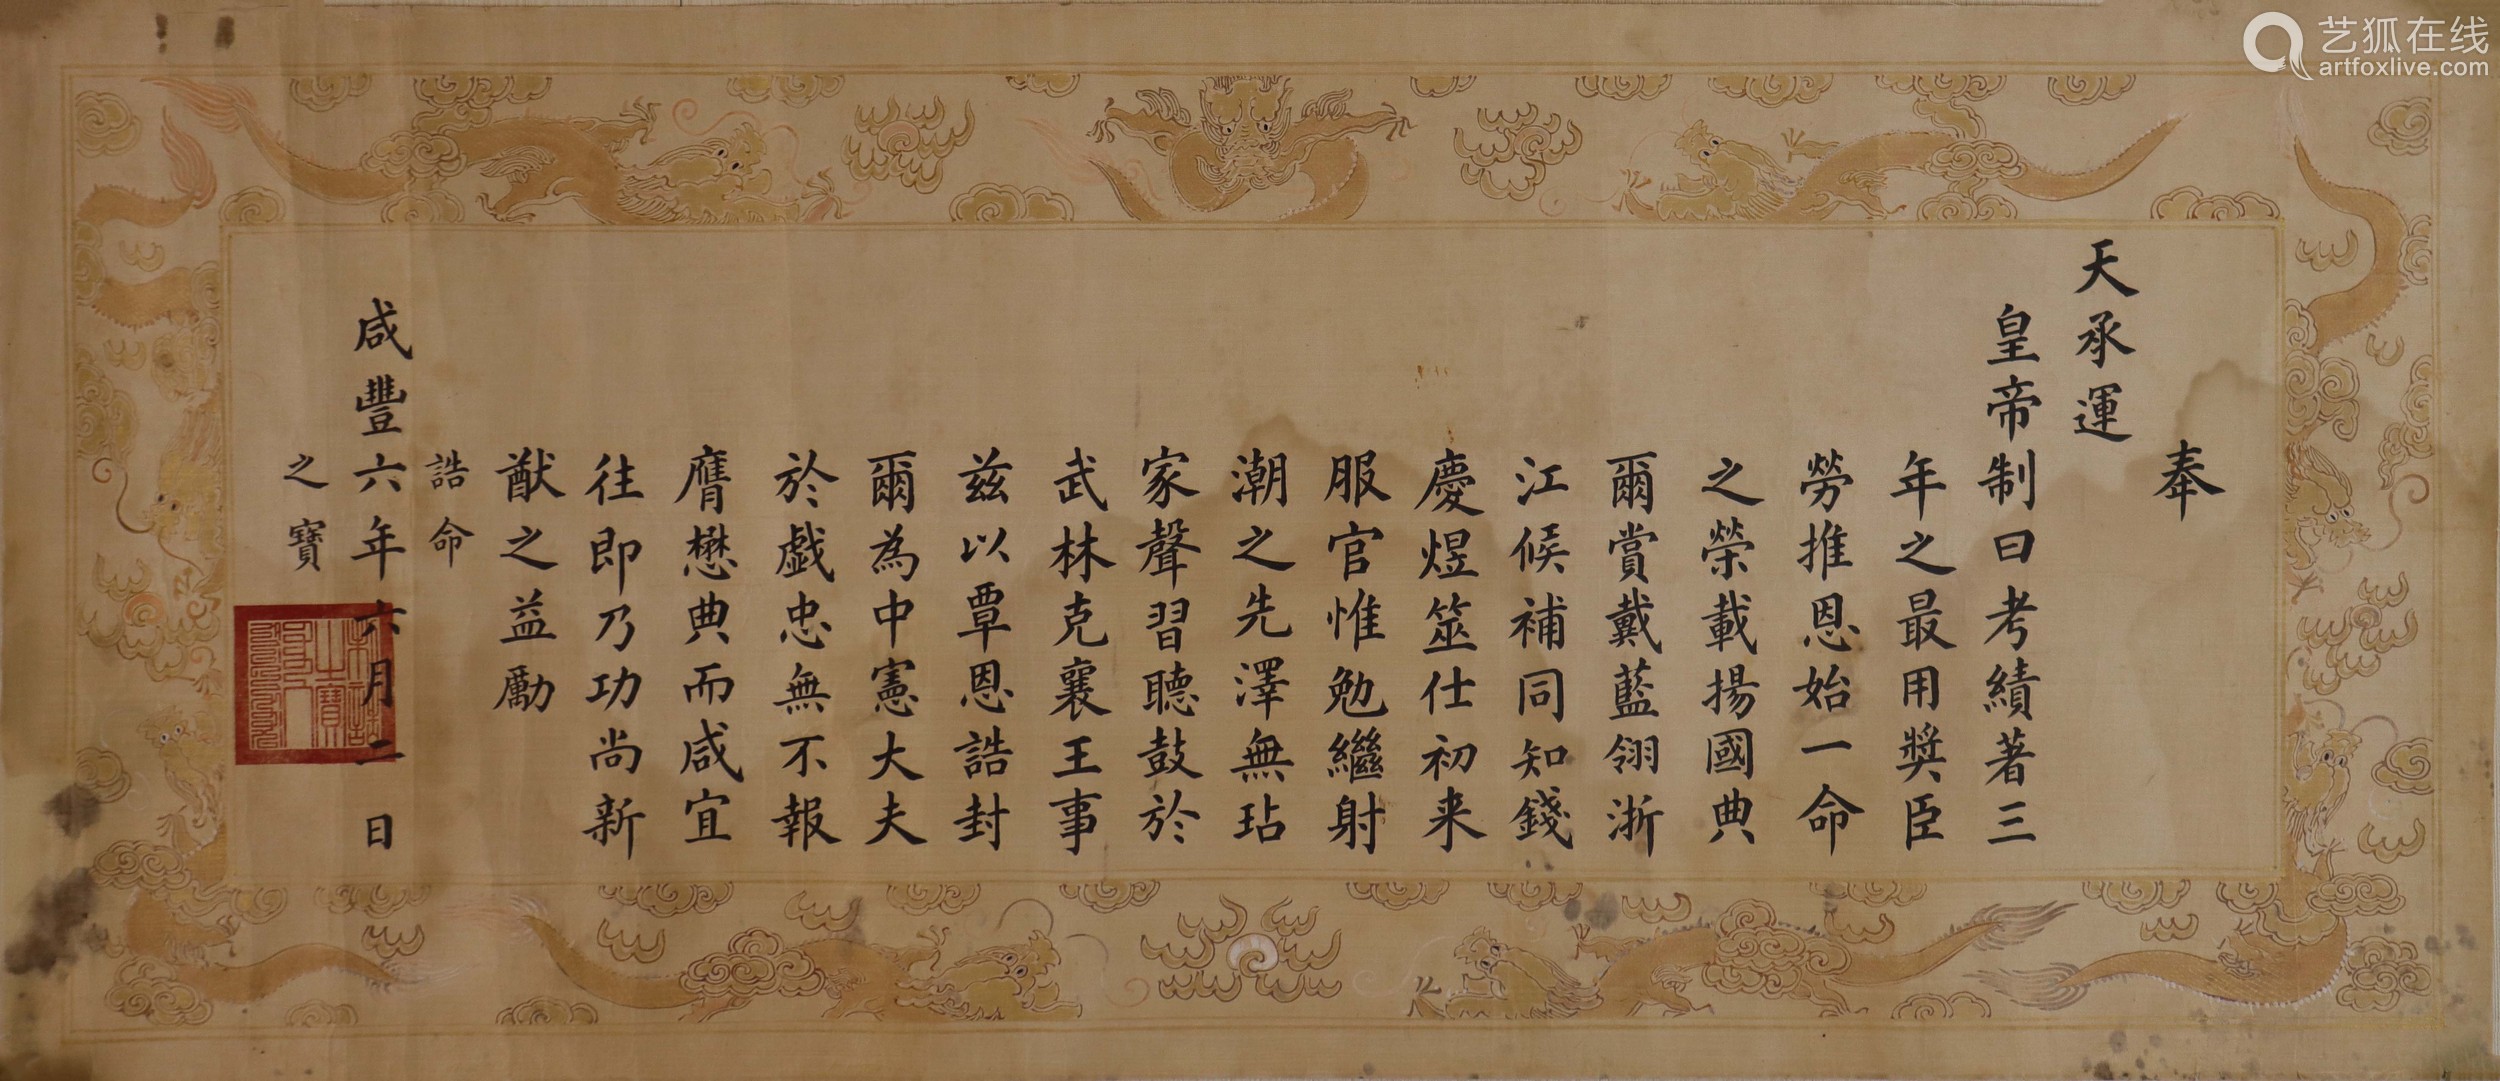 奉
天承運
皇帝制曰考績著三
年之最用獎臣
勞推恩始一命
之榮載揚國典
爾賞戴藍翎浙
江候補同知錢
慶煜筮仕初来
服官惟勉繼射
潮之先澤無玷
家聲習聽鼓於
武林克襄王事
兹以覃恩誥封
爾為中憲大夫
於戯忠無不報
膺懋典而咸宜
往即乃功尚新
猷之益勵
誥命
咸豐六年六月二日
之寶
艺狐在线
artfoxlive.com